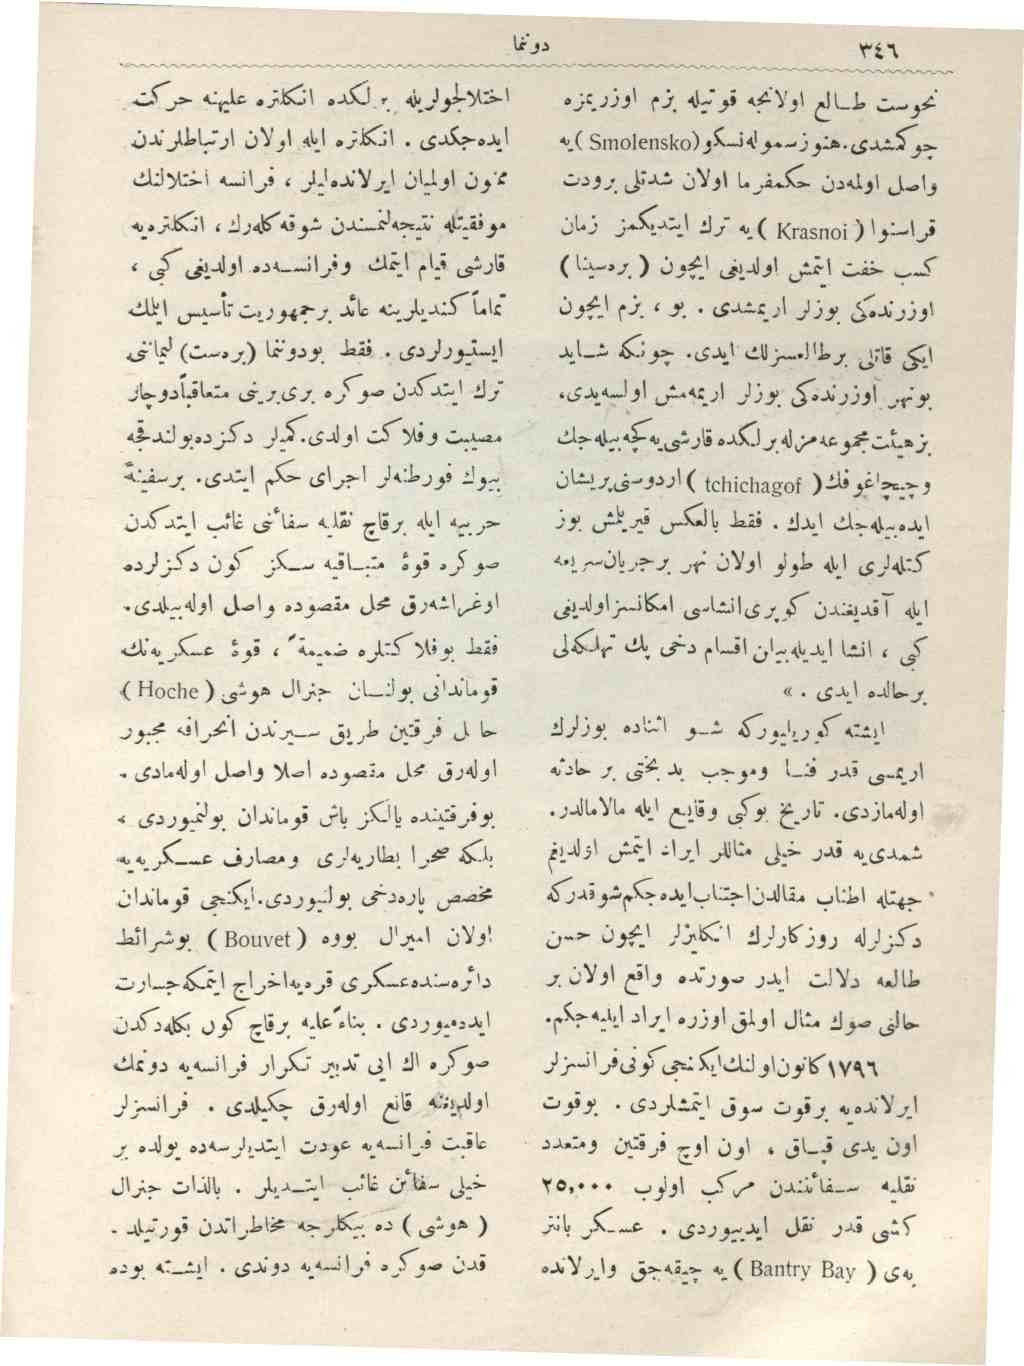 ٣٤٦
دوننما
نحوست طـالع اولانجه قوتيله بزم اوزريمزه
چوكمشدى. هنوز سمولەنسكو (Smolensko) يه
واصل اولمەدن حكمفرما اولان شدتلى برودت
قراسنوا (Krasnoi) يه ترك ايتديكمز زمان
كسب خفت ايتمش اولديغى ايچون (برەسينا)
اوزرندەكى بوزلر اريمشدى . بو ، بزم ايچون
ايكى قاتلى برطالعسزلك ايدى. چونكه شـايد
بونهر اوزرندەكى بوزلر اريمەمش اولسەيدى،
بز هيئت مجموعەمزله برلكده قارشى يه كچەبيلەجك
وچيچاغوفك (tchichagof) اردوسنى پريشان
ايدەبيلەجك ايدك . فقط بالعكس قيريلمش بوز
كتلەلرى ايله طولو اولان نهر برجريان سريعه
ايله آقديغندن كوپرى انشاسى امكانسز اولديغى
كبى ، انشا ايديلەبيلن اقسام دخى پك تهلكەلى
برحالده ايدى . »
ايشته كوريليوركه شـو اثناده بوزلرك
اريمسى قدر فنـا وموجب بدبختى بر حادثه
اولەمازدى. تاريخ بوكبى وقايع ايله مالامالدر.
شمدى يه قدر خيلى مثاللر ايراد ايتمش اولديغم
جهتله اطناب مقالدن اجتناب ايدەجكم شوقدركه
دكزلرله روزكارلرك انكليزلر ايچون حسن
طالعه دلالت ايدر صورتده واقع اولان بر
حالنى صوك مثال اولمق اوزره ايراد ايليەجكم.
١٧٩٦ كانون اولنك ايكنجى كونى فرانسزلر
ايرلاندەيه برقوت سوق ايتمشلردى . بوقوت
اون يدى قپـاق ، اون اوچ فرقتين ومتعدد
نقليه سـفائنندن مركب اولوب ٢٥,٠٠٠
كشى قدر نقل ايدييوردى . عسـكر بانتر
بەى (Bantry Bay) يه چيقەجق وايرلانده
اختلالجولريله برلكده انكلتره عليهنه حركت
ايدەجكدى . انكلتره ايله اولان ارتباطلرندن
ممنون اولميان ايرلاندەليلر ، فرانسه اختلالنك
موفقيتله نتيجەلنمسندن شوقه كلەرك ، انكلترەيه
قارشى قيام ايتمك وفرانسـەده اولديغى كبى ،
تماماً كنديلرينه عائد برجمهوريت تأسيس ايلمك
ايستيورلردى . فقط بودوننما (برەست) ليماننى
ترك ايتدكدن صوكره برى برينى متعاقباً دوچار
مصيبت وفلاكت اولدى. كميلر دكزده بولندقجه
بيوك فورطنەلر اجراى حكم ايتدى. برسفينۀ
حربيه ايله برقاچ نقليه سفائنى غائب ايتدكدن
صوكره قوۀ متبـاقيه سـكز كون دكزلرده
اوغراشەرق محل مقصوده واصل اولەبيلدى.
فقط بوفلاكتلره ضميمةً ، قوۀ عسكريەنك
قوماندانى بولنـان جنرال هوشى (Hoche)
حامل فرقتين طريق سـيرندن انحرافه مجبور
اولەرق محل مقصوده اصلا واصل اولەمادى .
بوفرقتينده يالكز باش قوماندان بولنميوردى ،
بلكه صحرا بطاريەلرى ومصارف عسـكريەيه
مخصص پارەدخى بولنيوردى. ايكنجى قوماندان
اولان اميرال بووه (Bouvet) بوشرائط
دائرەسنده عسكرى قرەيه اخراج ايتمكه جسارت
ايدەميوردى . بناءً عليه برقاچ كون بكلەدكدن
صوكره اك ايى تدبير تكرار فرانسەيه دونمك
اولديغنه قانع اولەرق چكيلدى . فرانسزلر
عاقبت فرانسەيه عودت ايتديلرسەده يولده بر
خيلى سفائن غائب ايتـديلر . بالذات جنرال
(هوشى) ده بيكلرجه مخاطراتدن قورتيلد.
قدن صوكره فرانسەيه دوندى . ايشـته بوده